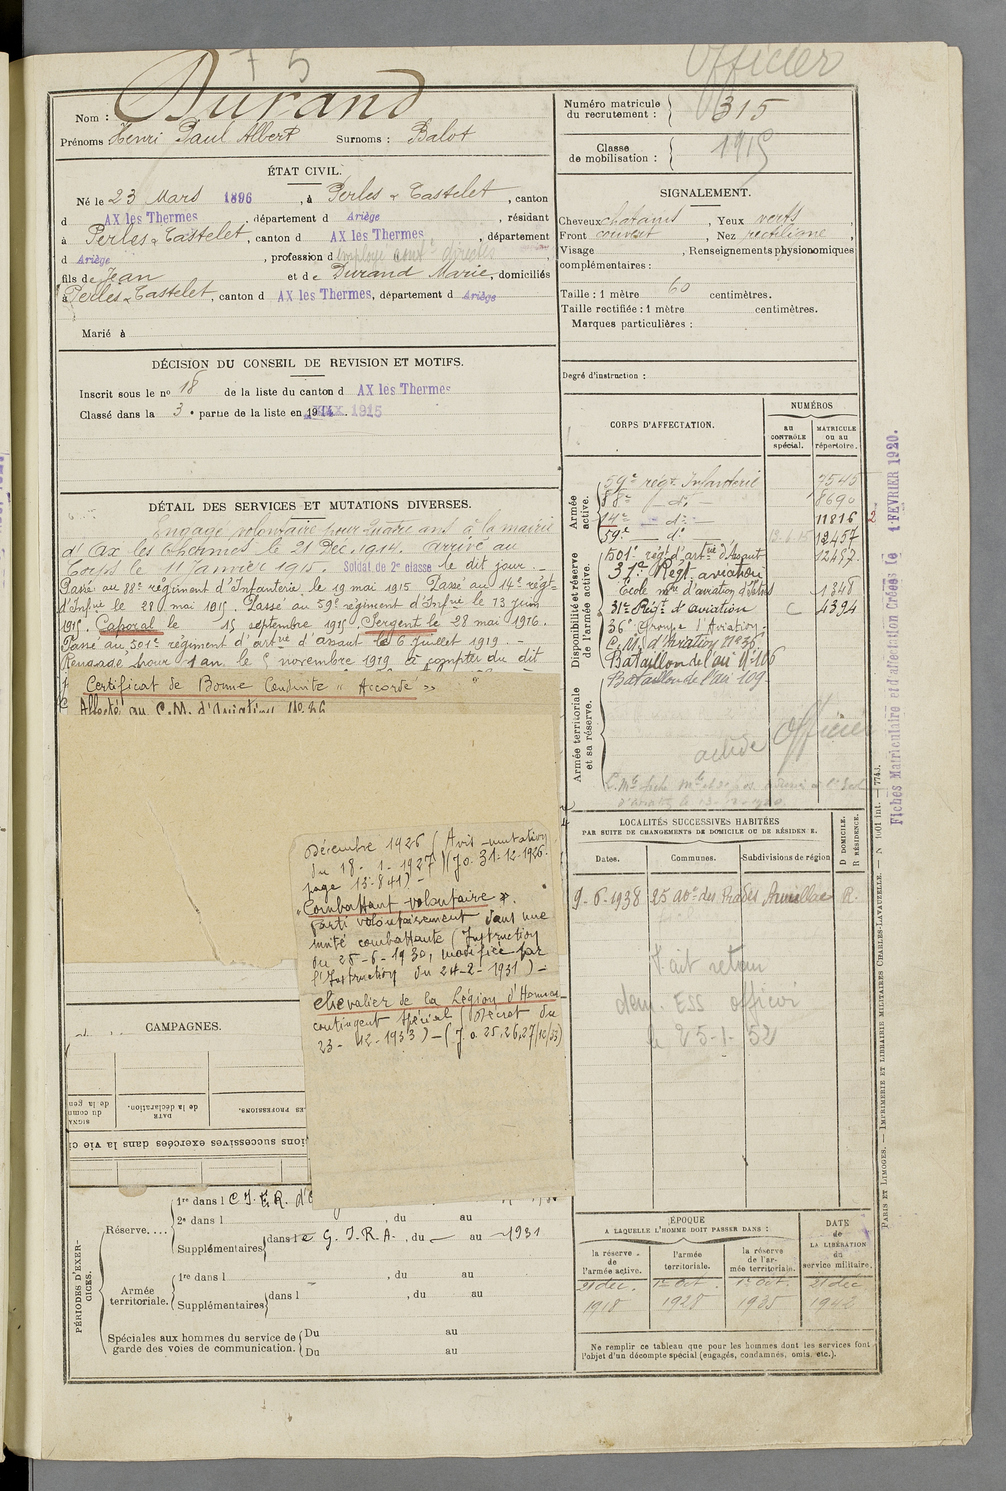 75
Officier
Nom : Durand
Prénoms Henri Paul Albert Surnoms : Balot
Numéro matricule du recrutement : 315
Classe de mobilisation : 1915
ÉTAT CIVIL.
Né le 23 Mars 1896, à Perles & Castelet, canton
d AX les Thermes, département d Ariège, résidant
à Perles & Castelet, canton d AX les Thermes, département
d Ariège, profession d employé
fils de Jean et de Durand Marie, domiciliés
à Perles & Castelet, canton d AX les Thermes, département d Ariège
Marié à
SIGNALEMENT.
Cheveux chatains, Yeux verts,
Front couvert, Nez rectiligne,
Visage, Renseignements physionomiques
complémentaires :
Taille : 1 mètre 60 centimètres.
Taille rectifiée : 1 mètre centimètres.
Marques particulières :
Degré d'instruction :
DÉCISION DU CONSEIL DE REVISION ET MOTIFS.
Inscrit sous le no 18 de la liste du canton d AX les Thermes
Classé dans la 3e partie de la liste en 1915
DÉTAIL DES SERVICES ET MUTATIONS DIVERSES.
Engagé volontaire pour quatre ans à la mairie
d'Ax les Thermes le 21 Déc. 1914. Arrivé au
Corps le 11 Janvier 1915. Soldat de 2e classe le dit jour. -
Passé au 88e régiment d'Infanterie le 19 mai 1915 Passé au 14e régt
d'Infrie le 28 mai 1915. Passé au 59e régiment d'Infrie le 13 juin
1915. Caporal le 15 septembre 1915 Sergent le 28 mai 1916.
Passé au 501e régiment d'artrie d'assaut le 6 Juillet 1919. -
Rengagé pour 1 an, le 5 novembre 1919 à compter du dit
Certificat de Bonne Conduite « Accordé »
Affecté au C.M. d'Aviation No 36
Décembre 1926 (Avis mutation
du 18-1-1927) (J.O. 31-12-1926
page 13.841) -
"Combattant volontaire".
Parti volontairement dans une
unité combattante (Instruction
du 28-6-1930, modifiée par
l'Instruction du 24-2-1931) -
Chevalier de la Légion d'Honneur
contingent spécial (Décret du
23-12-1933) - (J.O. 25.26.27/12/33)
CORPS D'AFFECTATION.
NUMÉROS
AU CONTRÔLE spécial.
MATRICULE ou au répertoire.
Armée active.
59e régt Infanterie 7545
88e - do - 8690
14e - do - 11816 2
59e - do - 13.6.15 12457
Disponibilité et réserve de l'armée active.
501e régt d'artrie d'Assaut 12457
31e Régt aviation
Ecole mre d'aviation d'Istres 1348
31e Régt d'aviation C 4394
36e Groupe d'Aviation.
C.M. d'Aviation No 36
Bataillon de l'air No 106
Bataillon de l'air 109
Armée territoriale et sa réserve.
Officier
LOCALITÉS SUCCESSIVES HABITÉES
PAR SUITE DE CHANGEMENTS DE DOMICILE OU DE RÉSIDENCE.
Dates.
Communes.
Subdivisions de région
D DOMICILE.
R RÉSIDENCE.
9-6-1938 25 av. des Prades Aurillac R.
Fait retour
dem. ESS officier
le 25-1-52
CAMPAGNES.
SIGNA
du comm
de la gen
DATE
de la déclaration.
LES PROFESSIONS.
ions successives exercées dans la vie ci
PÉRIODES D'EXERCICES.
Réserve....
1re dans l C.I.E.R.
2e dans l, du au
Supplémentaires dans le G.I.R.A., du - au 1931
Armée territoriale.
1re dans l, du au
Supplémentaires dans l, du au
Spéciales aux hommes du service de garde des voies de communication.
Du au
Du au
ÉPOQUE
A LAQUELLE L'HOMME DOIT PASSER DANS :
la réserve de l'armée active.
l'armée territoriale.
la réserve de l'armée territoriale.
DATE de LA LIBÉRATION du service militaire.
21 déc. 1918
1er Oct. 1928
1er Oct. 1935
21 déc 1942
Ne remplir ce tableau que pour les hommes dont les services font
l'objet d'un décompte spécial (engagés, condamnés, omis, etc.).
Fiches Matriculaire et d'affectation Créées le 1 FEVRIER 1920.
PARIS ET LIMOGES. — IMPRIMERIE ET LIBRAIRIE MILITAIRES CHARLES-LAVAUZELLE. — N 1001 int. — 7743.